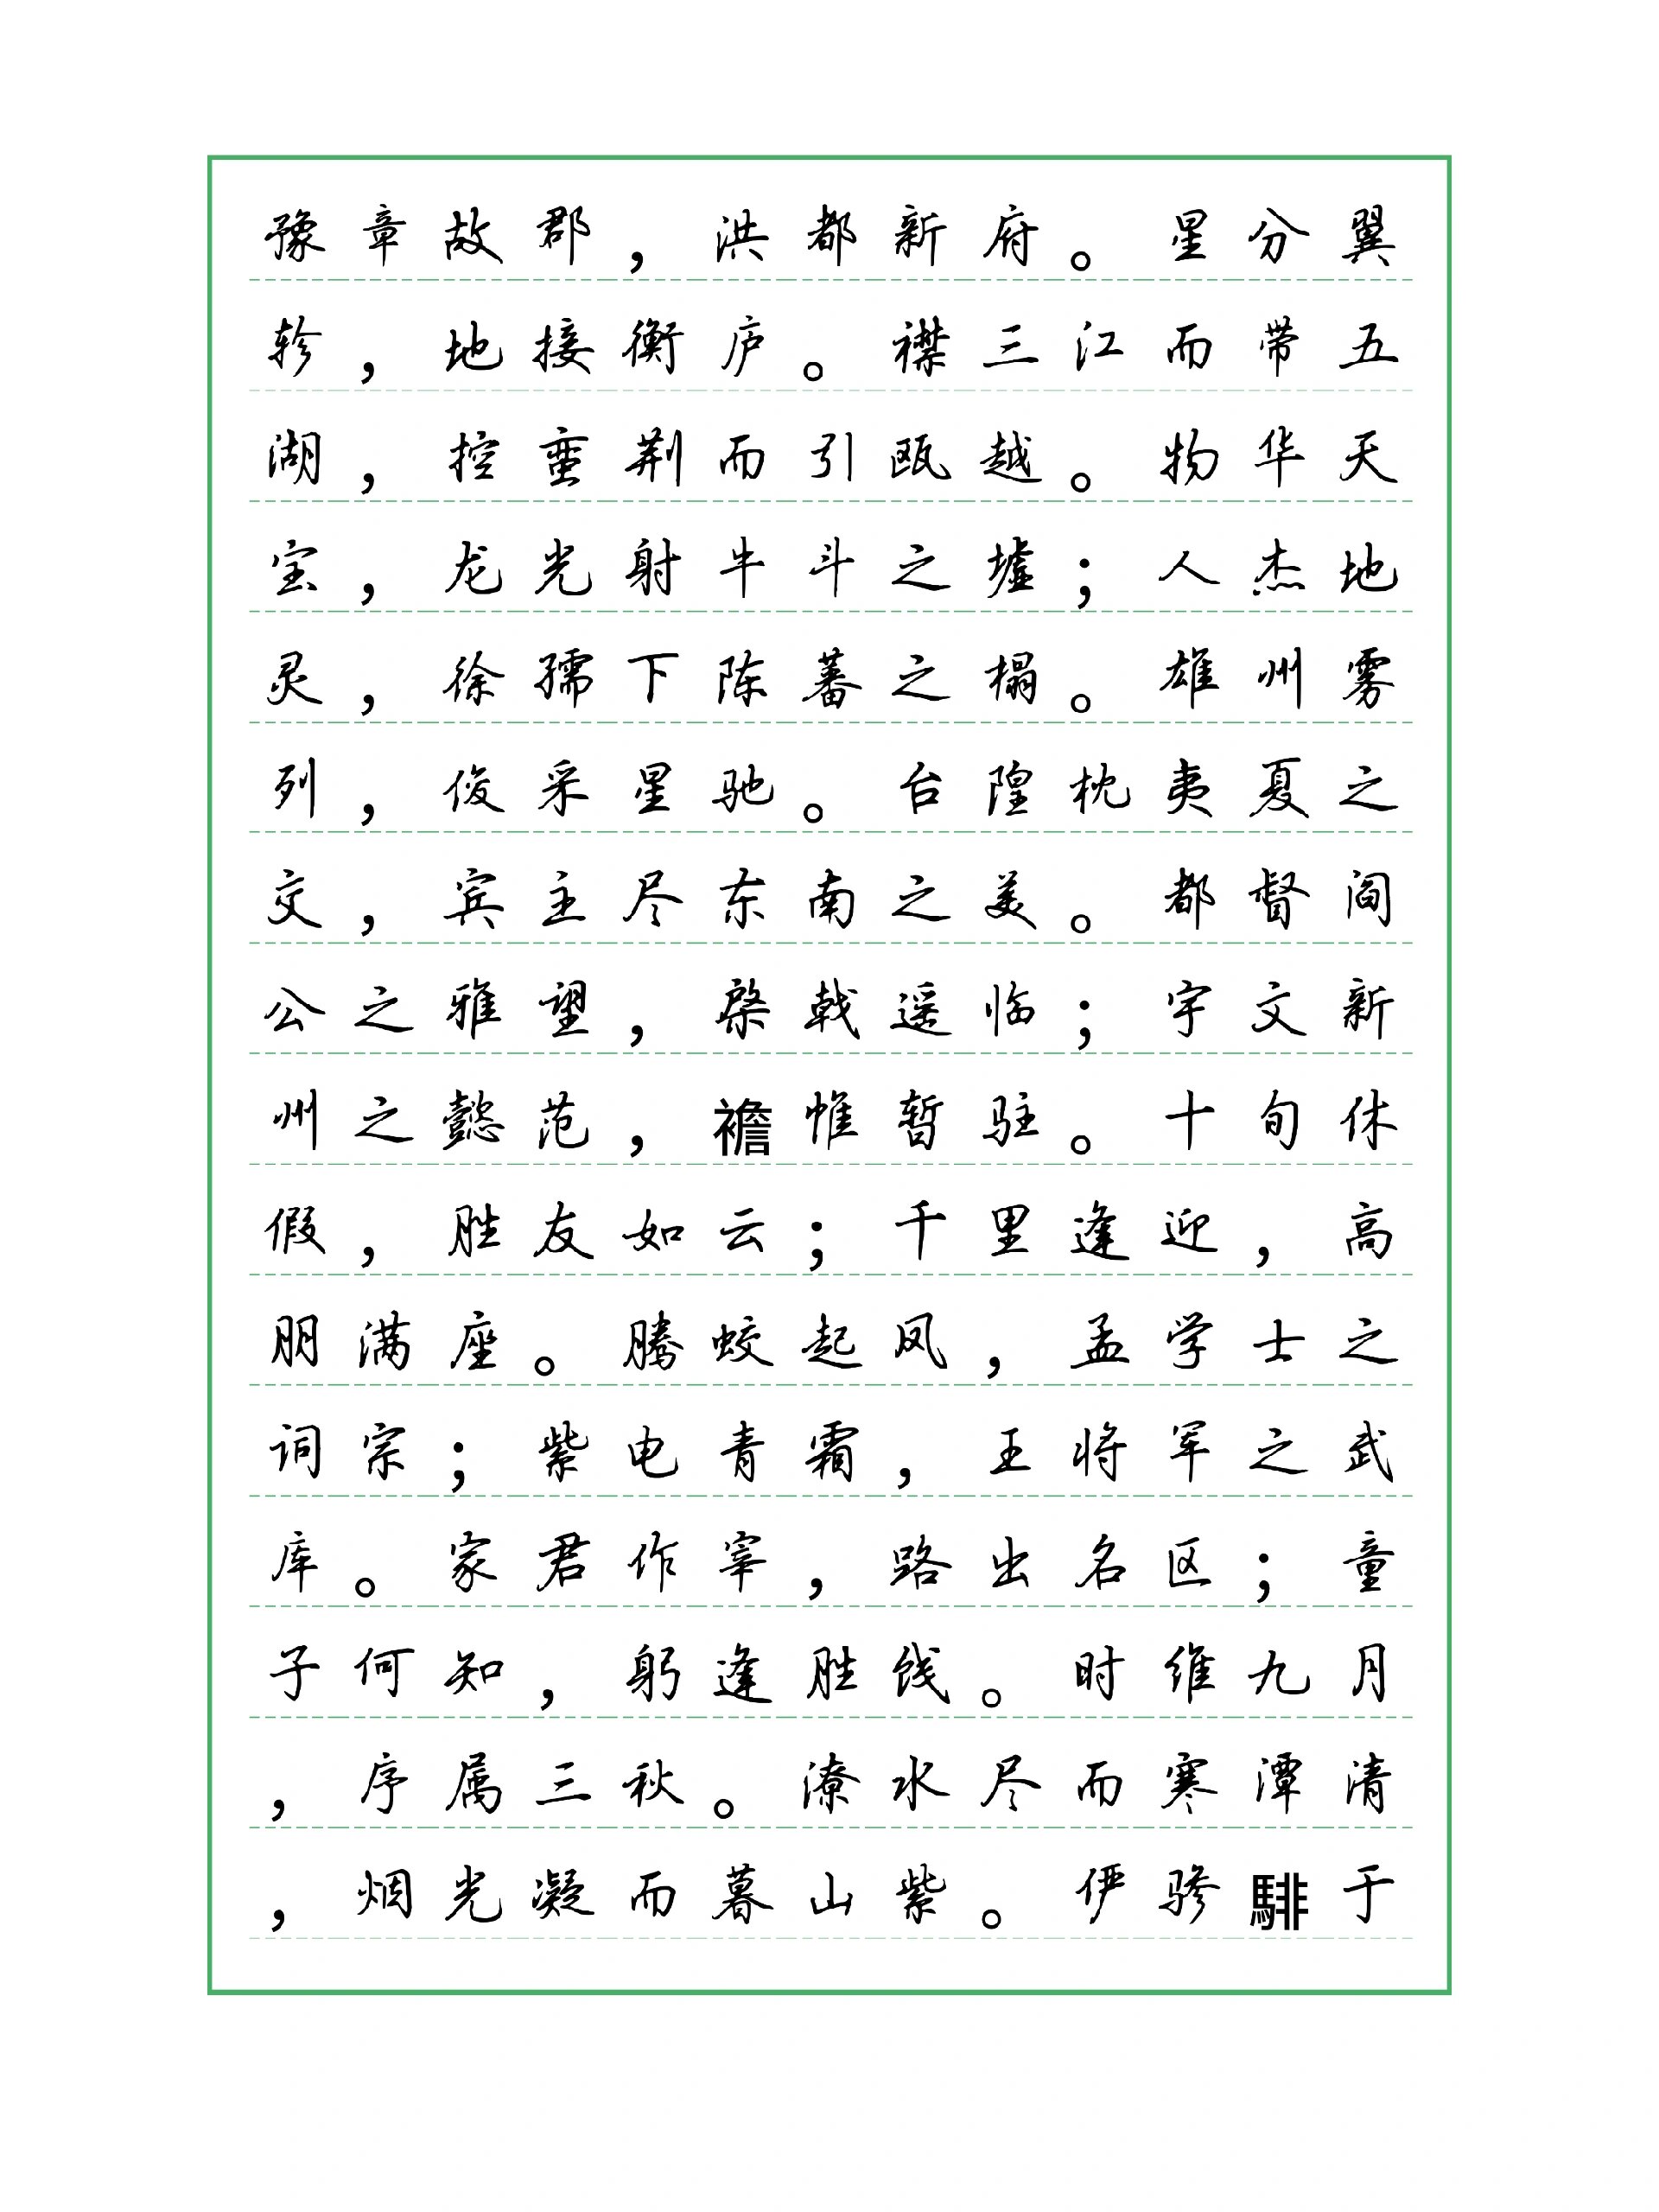 豫章故郡，洪都新府。星分翼
轸，地接衡庐。襟三江而带五
湖，控蛮荆而引瓯越。物华天
宝，龙光射牛斗之墟；人杰地
灵，徐孺下陈蕃之榻。雄州雾
列，俊采星驰。台隍枕夷夏之
交，宾主尽东南之美。都督阎
公之雅望，棨戟遥临；宇文新
州之懿范，襜帷暂驻。十旬休
假，胜友如云；千里逢迎，高
朋满座。腾蛟起凤，孟学士之
词宗；紫电青霜，王将军之武
库。家君作宰，路出名区；童
子何知，躬逢胜饯。时维九月
，序属三秋。潦水尽而寒潭清
，烟光凝而暮山紫。俨骖騑于